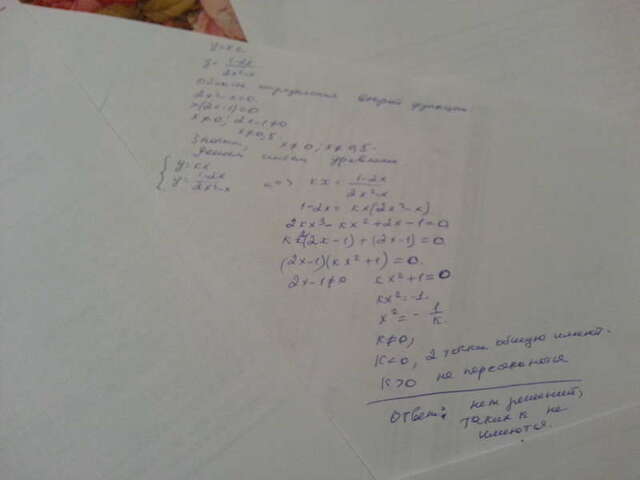 y=kx
y= (1-2x)/(2x²-x)
Область определения второй функции:
2x²-x≠0
x(2x-1)≠0
x≠0; 2x-1≠0
x≠0,5
Значит, x≠0, x≠0,5.
решаем уравнения
{ y=kx
y= (1-2x)/(2x²-x) <=> kx = (1-2x)/(2x²-x)
1-2x = kx(2x²-x)
2kx³-kx²+2x-1=0
kx²(2x-1)+(2x-1)=0.
(2x-1)(kx²+1)=0.
2x-1≠0 kx²+1=0
kx²=-1.
x²= - 1/k.
k≠0;
k<0, 2 точки общую имеют.
k>0 не пересекаются
Ответ: нет решений,
таких k не
имеются.